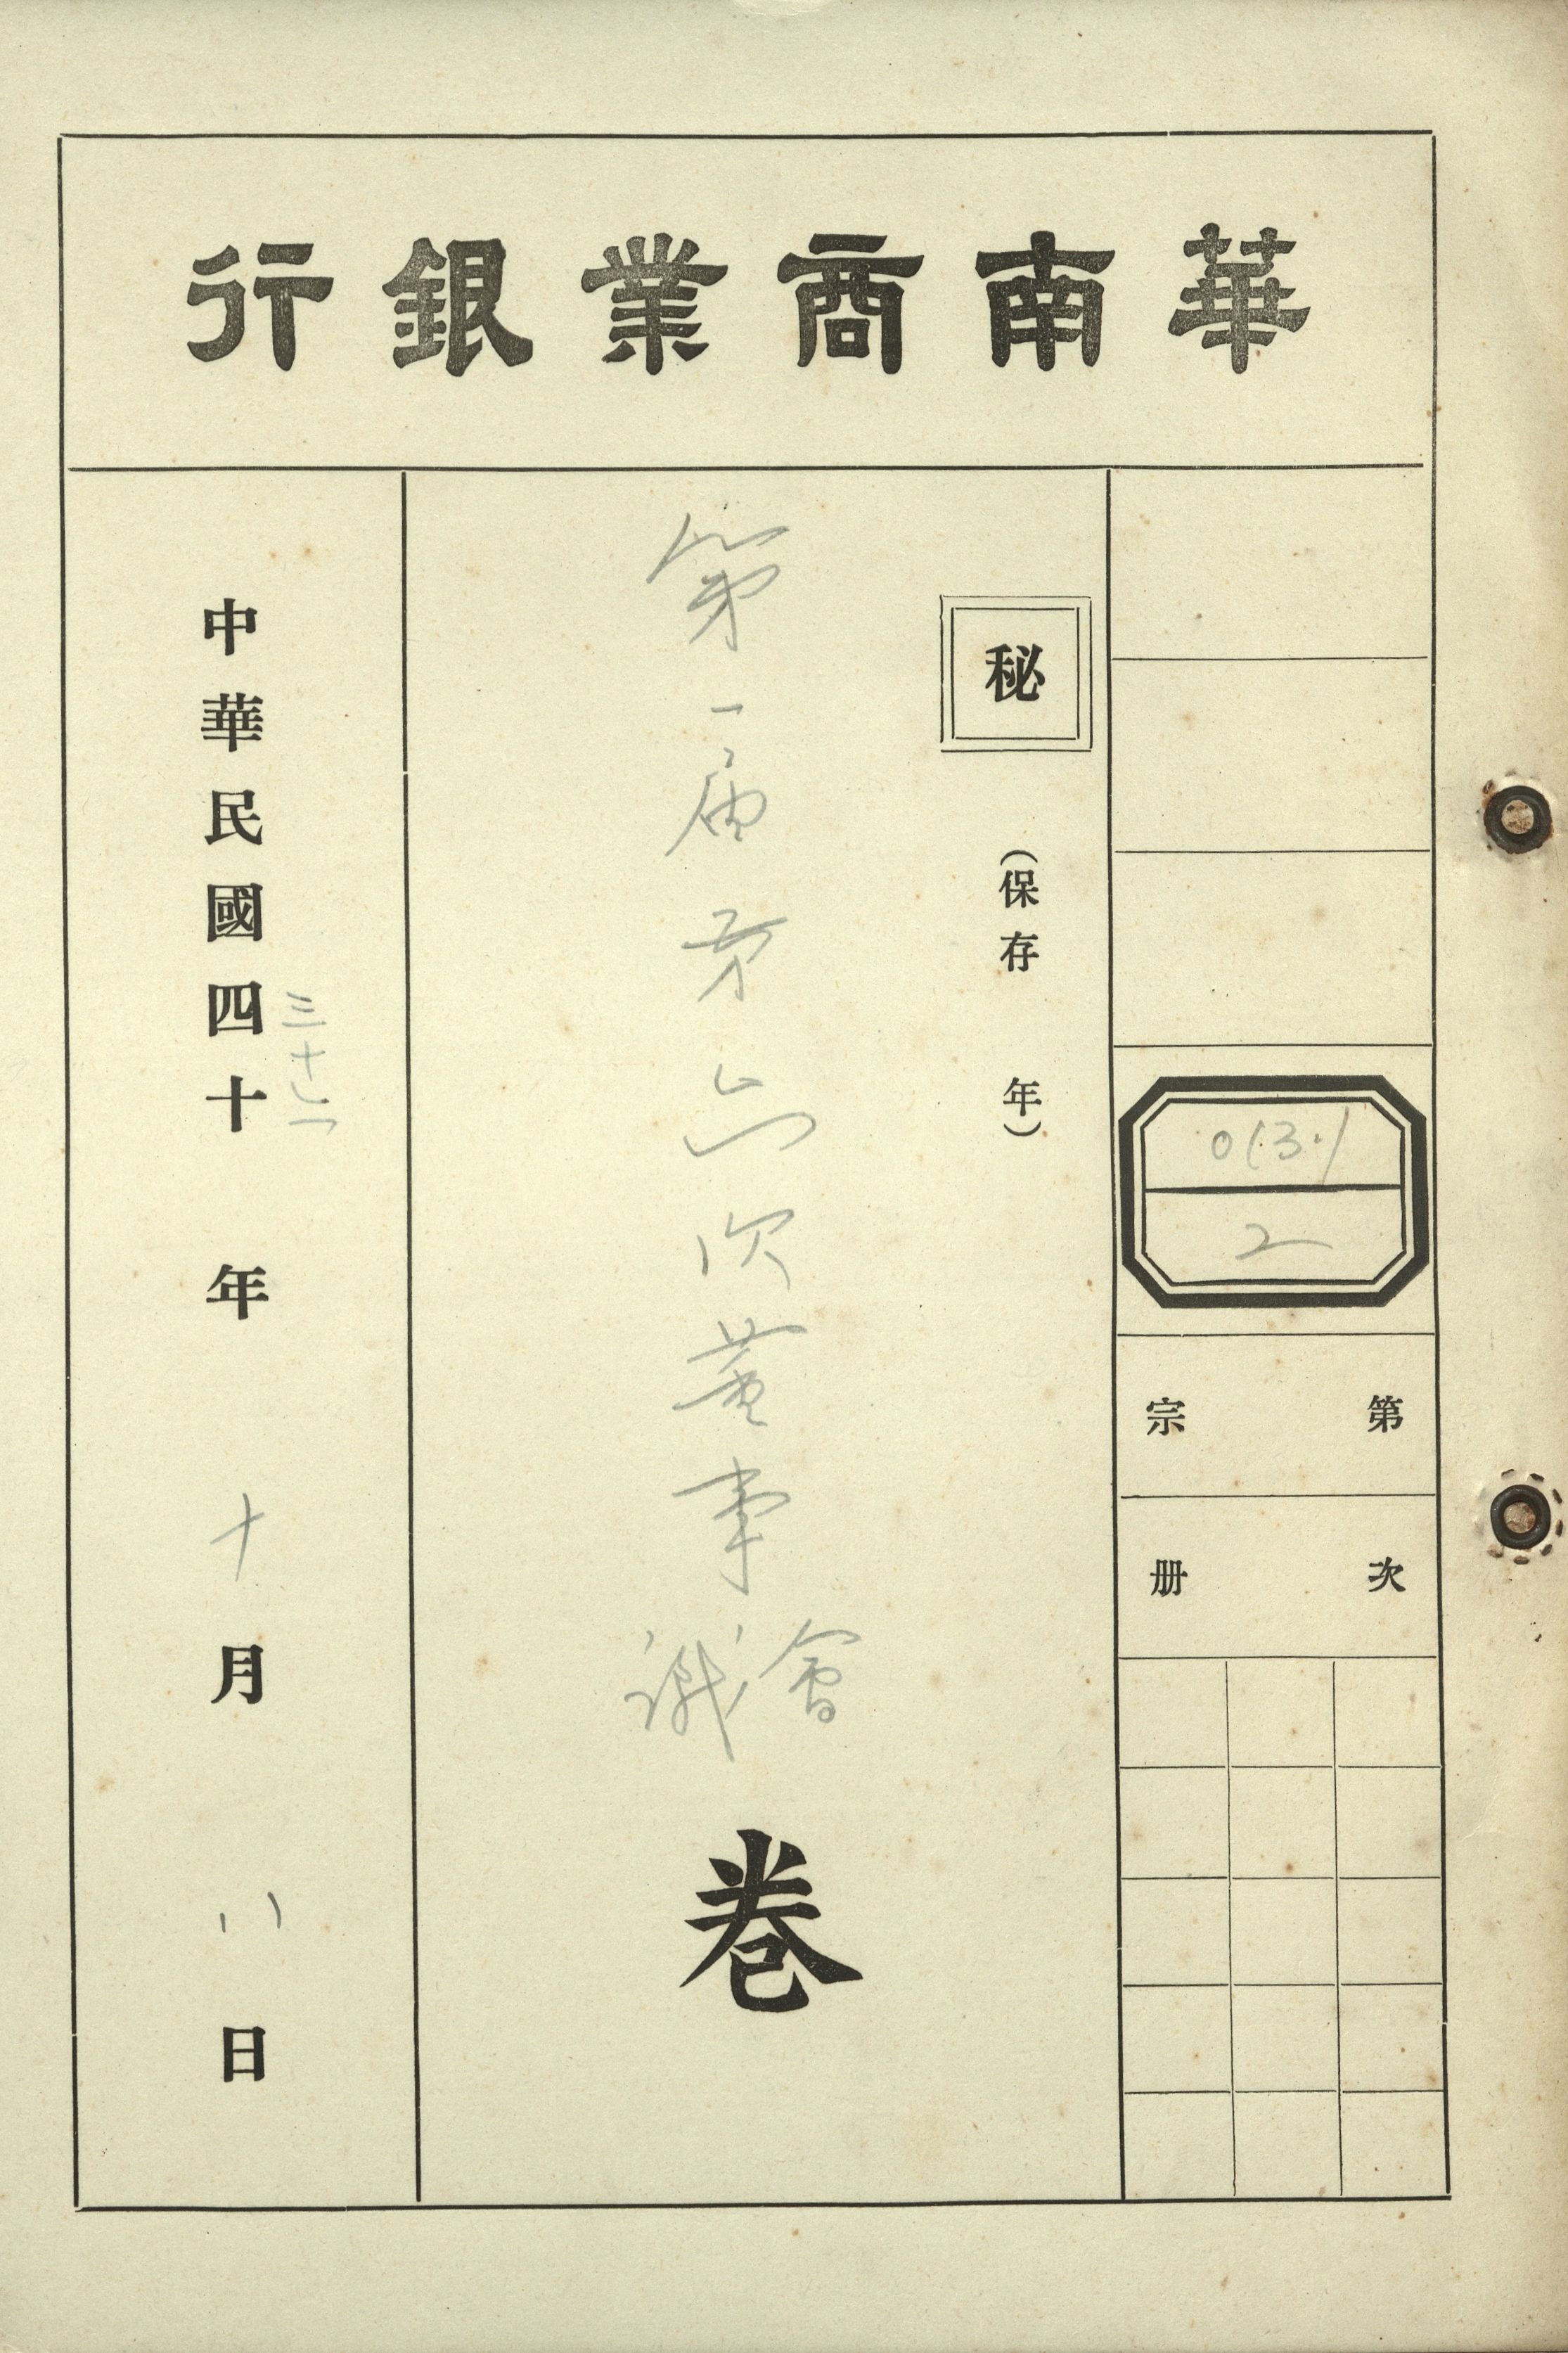 華南商業銀行
013.1
2
第宗
次册
秘
（保存　年）
第一屆第六次董事會議
卷
三十七
中華民國四十年十月八日